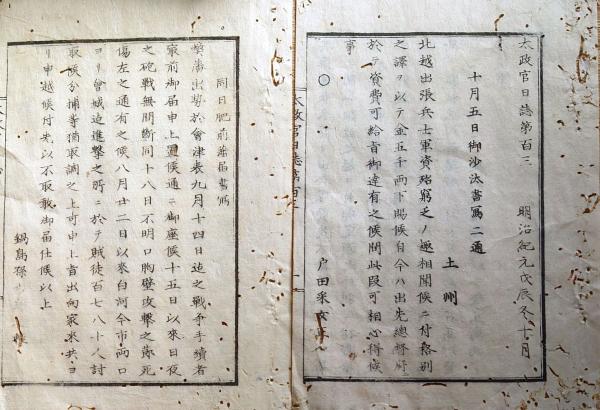 太政官日誌第百三 明治紀元戊辰冬十月
十月五日御沙汰書寫二通
土州
北越出張兵士軍資殆窮乏ノ趣相聞候ニ付格別
之譯ヲ以テ金五千兩下賜候自今ハ出先總督府
於テ資費可給旨御達有之候間此段可相心得候
事
戸田采女
○
太政官日誌第百三
同日肥前藩屆書寫
弊藩出勢於會津表九月十四日迄之戰爭手續者
最前御屆申上置候通ニ御座候十五日以來日夜
之砲戰無間斷同十八日不明口胸壁攻擊之節死
傷左之通有之候八月廿二日以來白河今市兩口
ヨリ會城迄進擊之所ニ於テ賊徒百七八十人討
取候分捕等猶取調之上可申上旨出向家來共ヨ
リ申越候付先以不取敢御屆仕候以上
鍋島